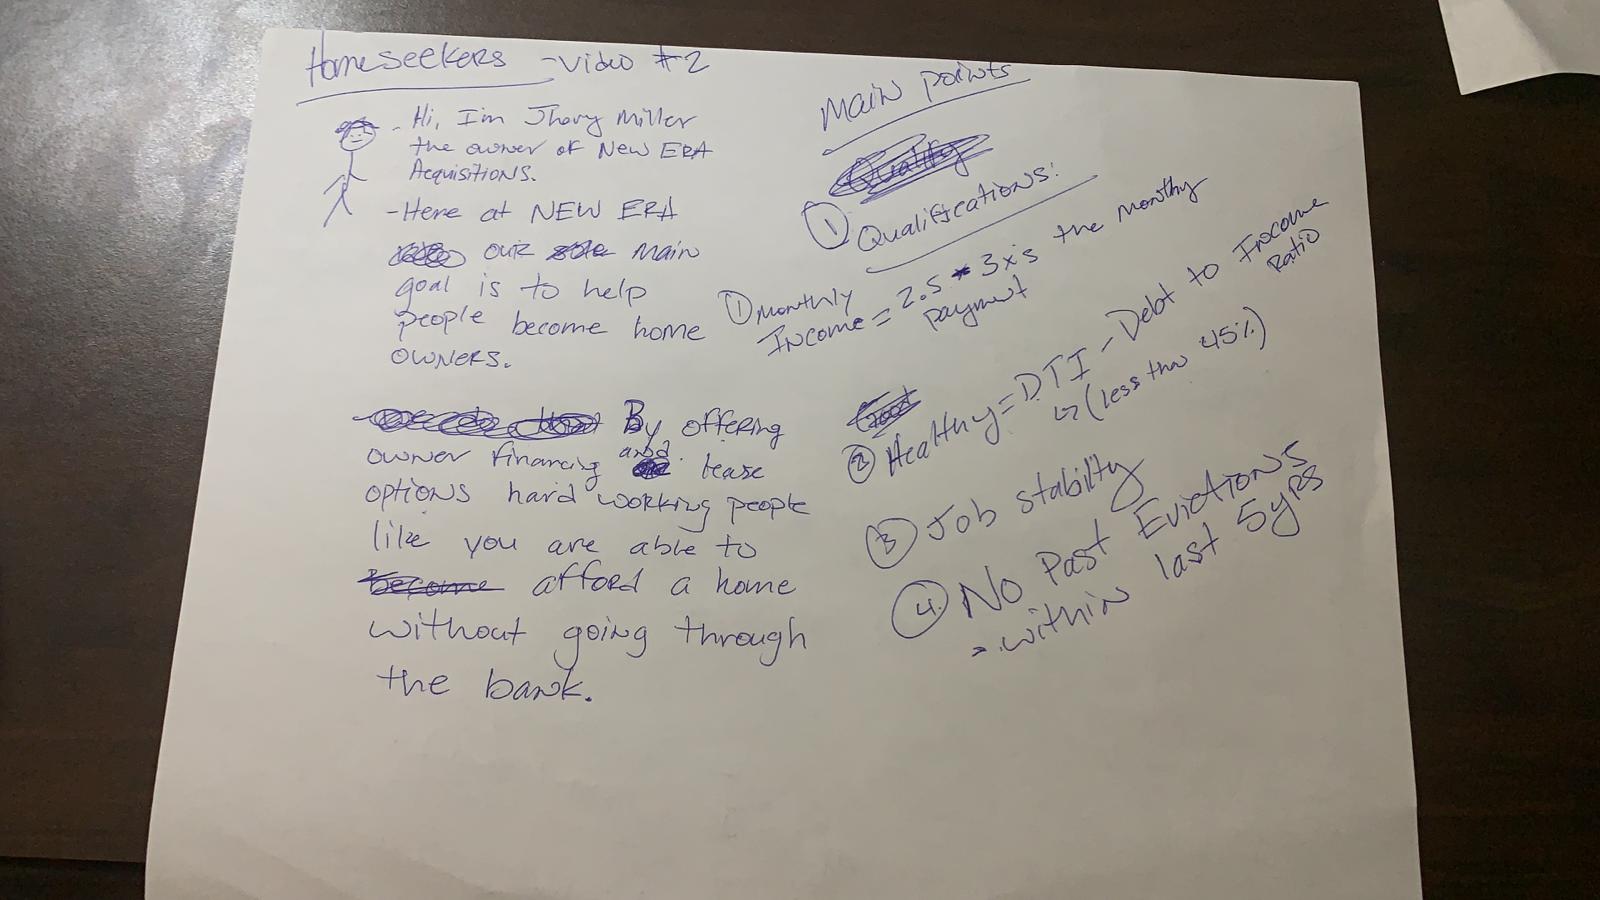 HomeSeekers - Video #2
- Hi, I'm Jhavy Miller
the owner of New ERA
Acquisitions.
- Here at NEW ERA
our main
goal is to help
people become home
owners.
By offering
owner financing and lease
options hard working people
like you are able to
become afford a home
without going through
the bank.
Main points
Quality
① Qualifications:
① Monthly
Income = 2.5 * 3x's the monthly
payment
② Healthy = DTI - Debt to Income
Ratio
↳ (less than 45%)
③ Job stability
④ No Past Evictions
→ within last 5yrs